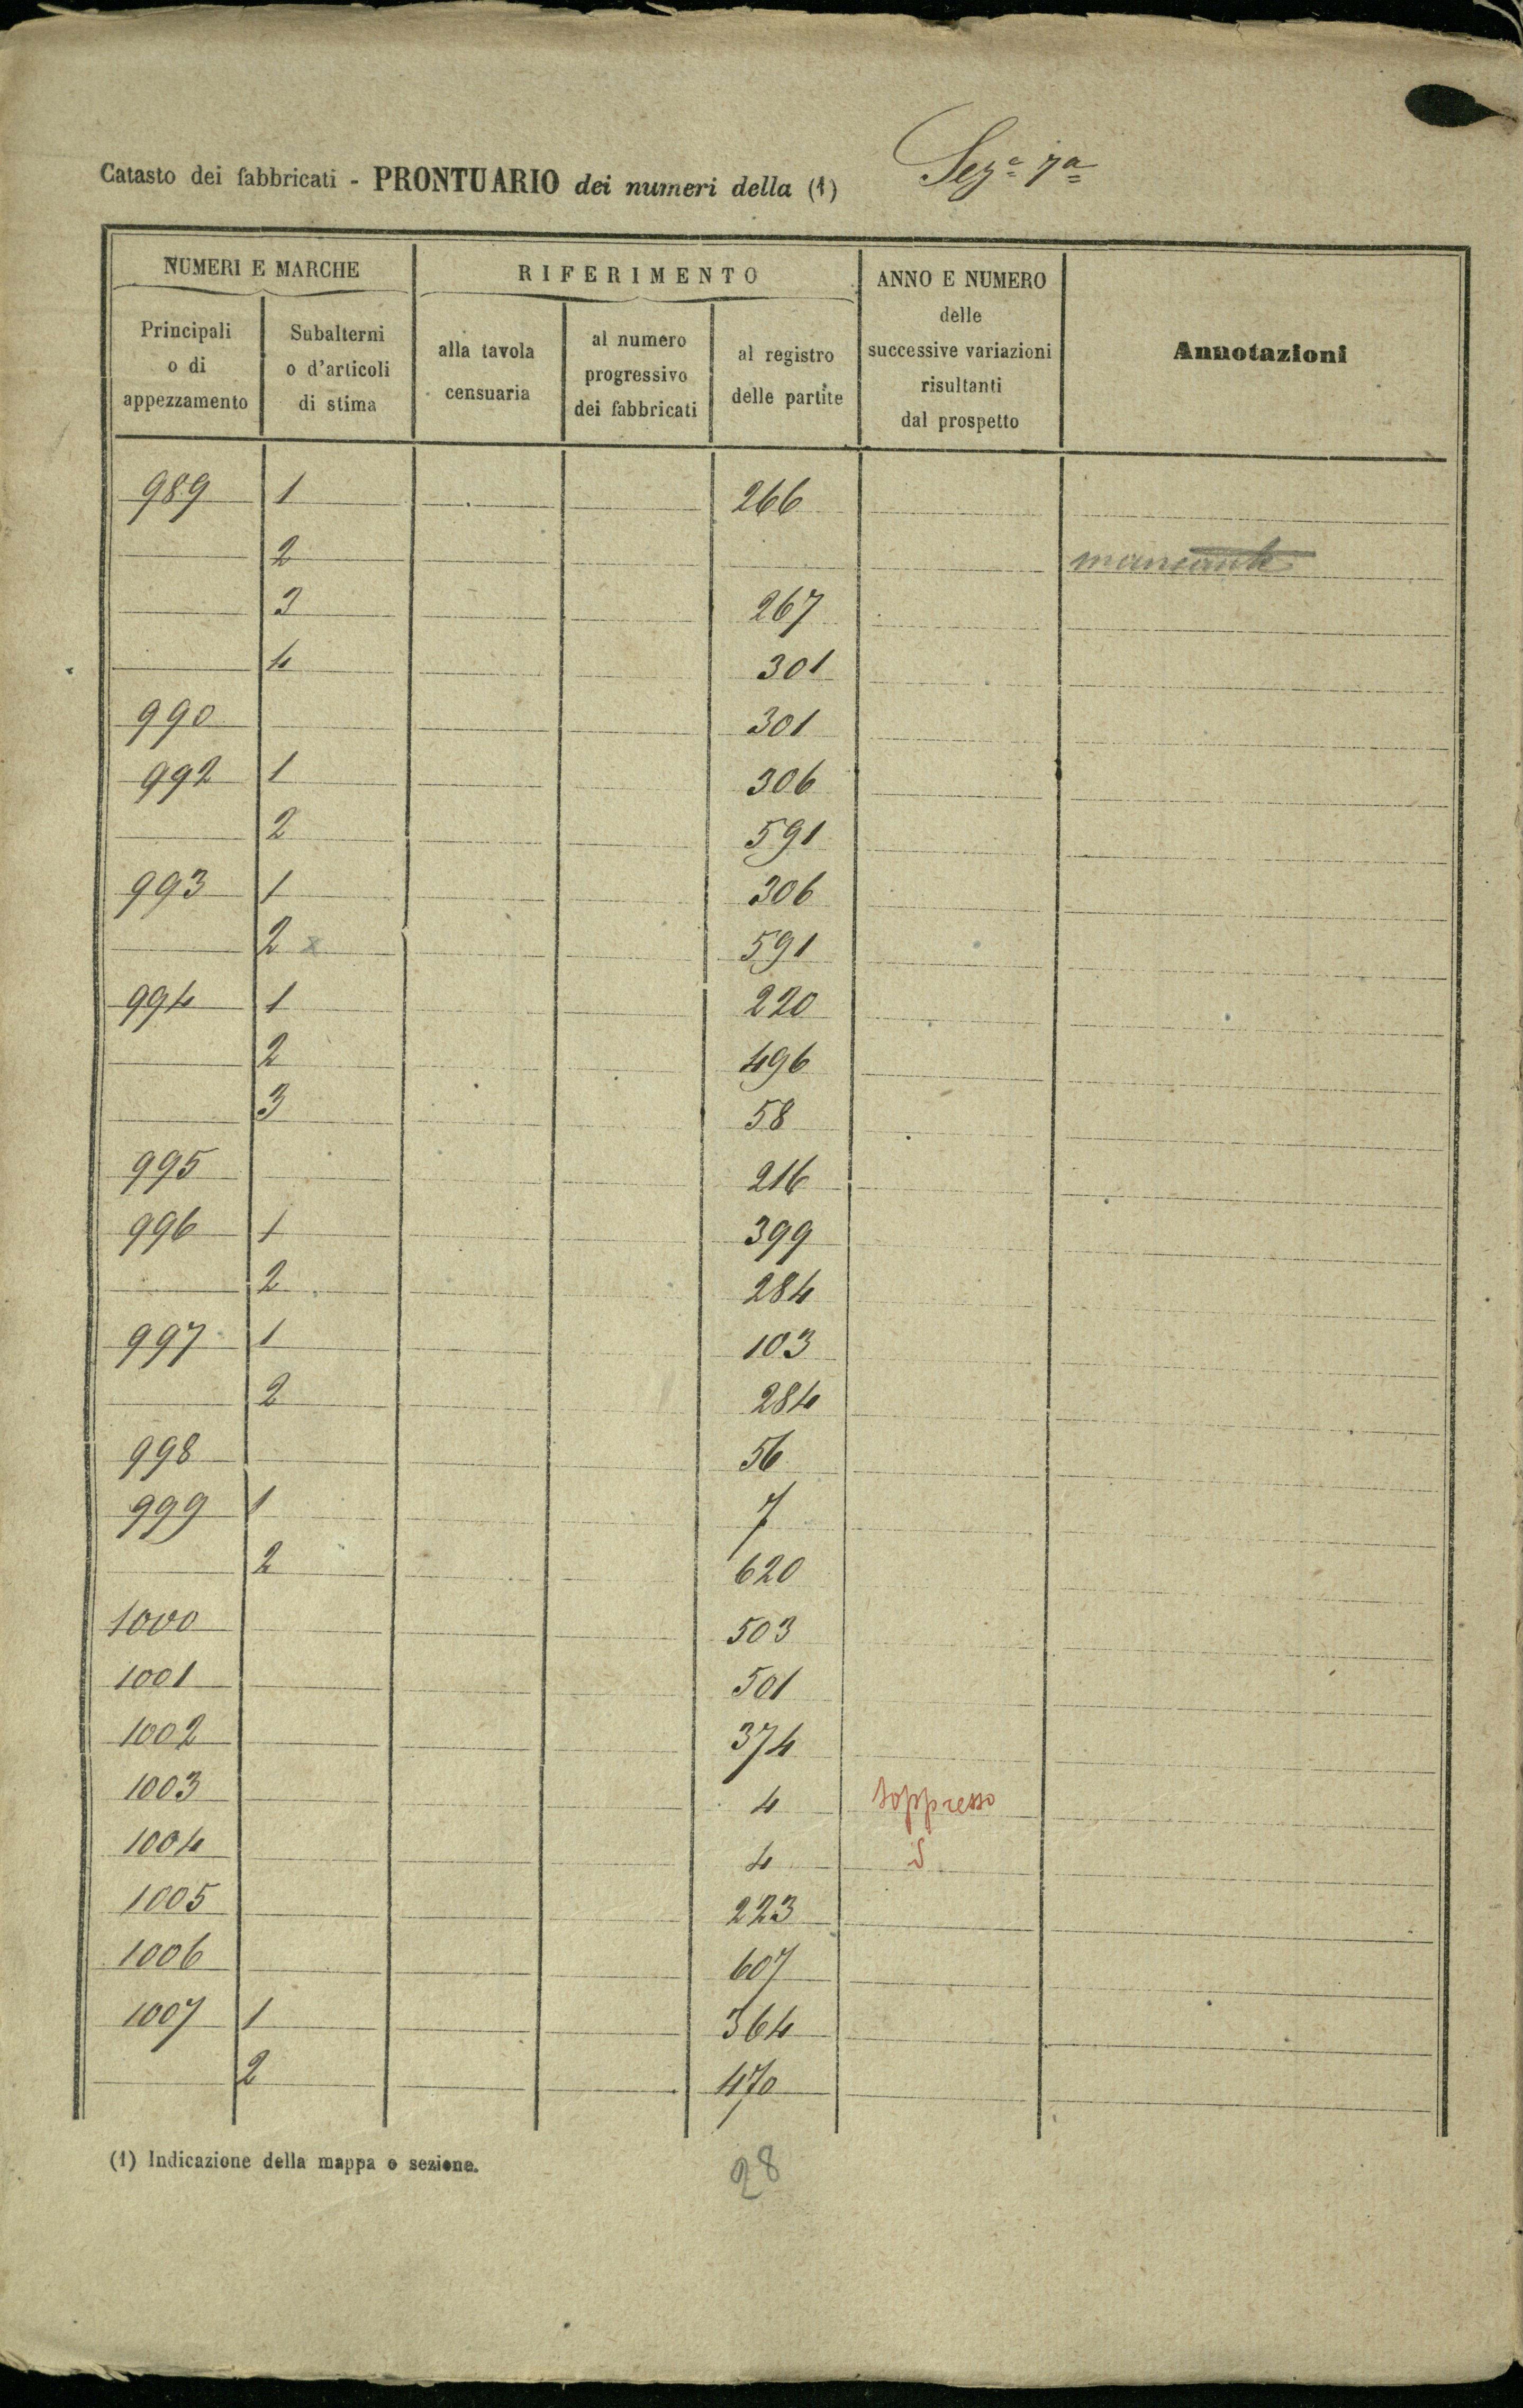 Catasto dei fabbricati - PRONTUARIO dei numeri della (1) Sez.e 7a
NUMERI E MARCHE RIFERIMENTO ANNO E NUMERO delle successive variazioni risultanti dal prospetto Annotazioni
Principali o di appezzamento Subalterni o d'articoli di stima alla tavola censuaria al numero progressivo dei fabbricati al registro delle partite
989 1 266
2 mancante
3 267
4 301
990 301
992 1 306
2 591
993 1 306
2 x 591
994 1 220
2 496
3 58
995 216
996 1 399
2 284
997 1 103
2 284
998 56
999 1 7
2 620
1000 503
1001 501
1002 374
1003 4 soppresso
1004 4 S
1005 223
1006 607
1007 1 364
2 470
(1) Indicazione della mappa o sezione.
28